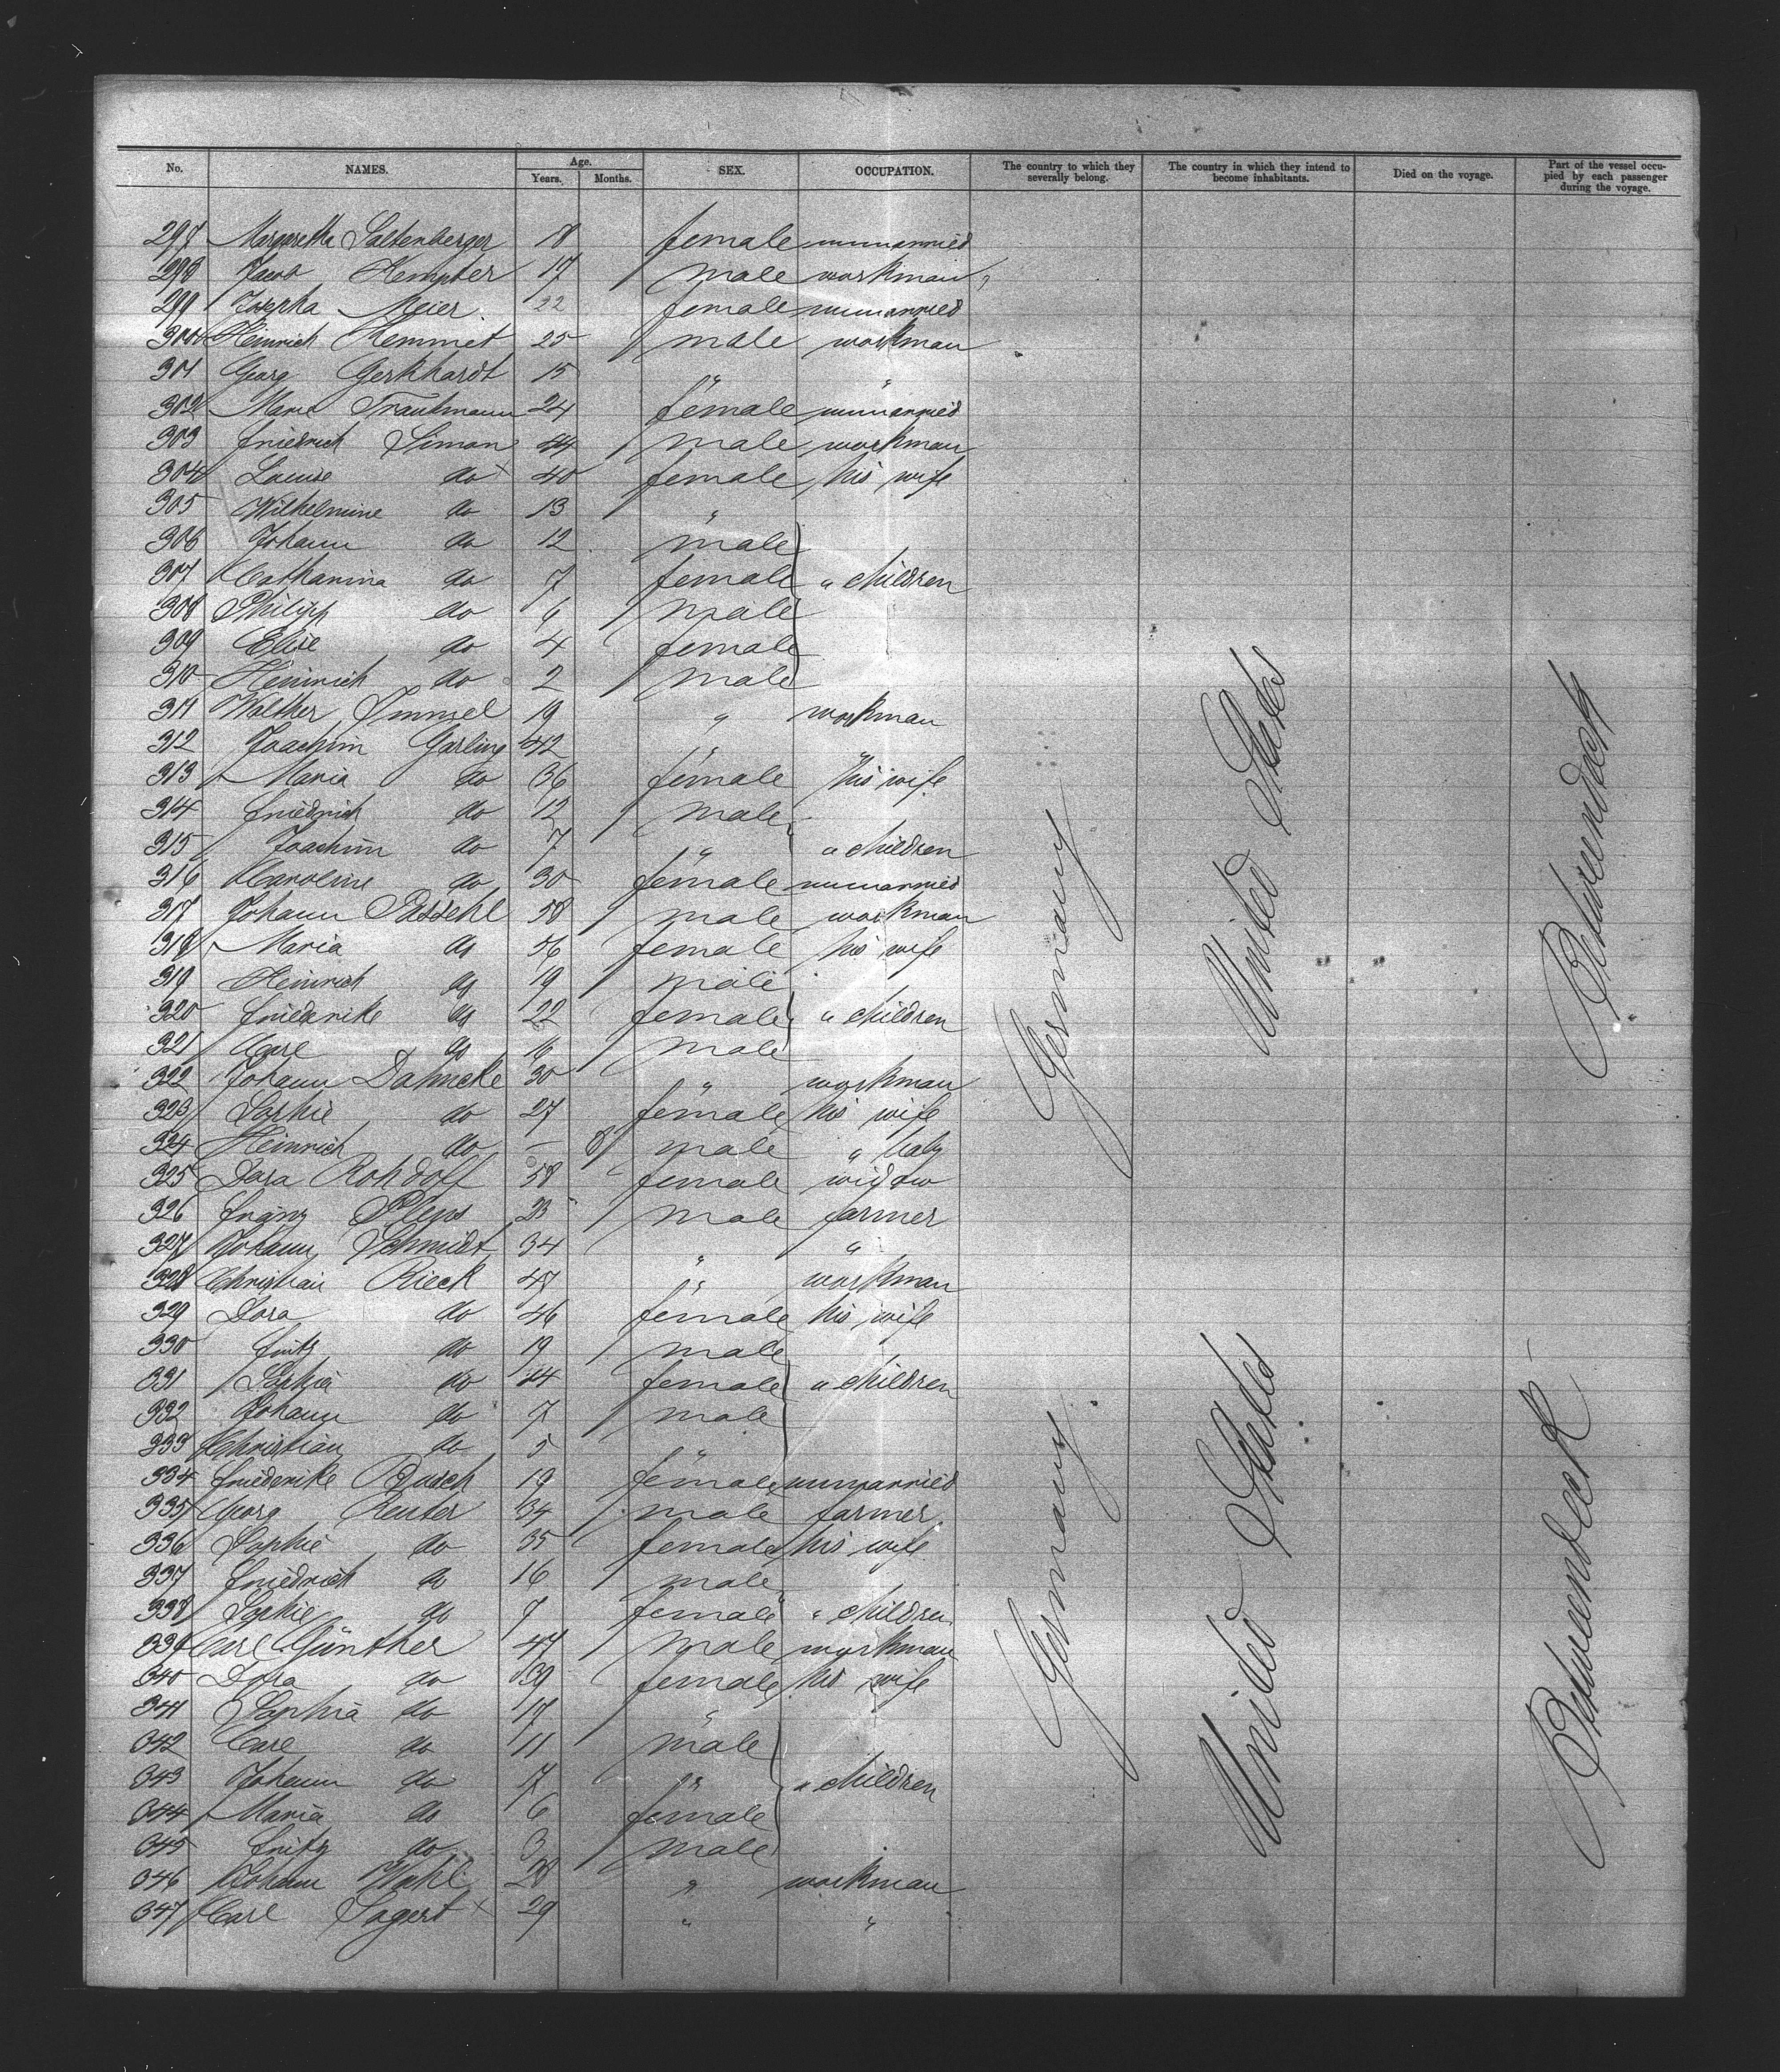 No. NAMES. Age. Years. Months. SEX. OCCUPATION. The country to which they severally belong. The country in which they intend to become inhabitants. Died on the voyage. Part of the vessel occupied by each passenger during the voyage.
297 Margaretha Saltenberger 18 female unmarried
298 Jacob Kempter 17 male workman
299 Josepha Meier 22 female unmarried
300 Heinrich Kemmet 25 male workman
301 Georg Gerkhardt 15 " "
302 Marie Trautmann 24 female unmarried
303 Friedrich Simon 44 male workman
304 Louise do 40 female his wife
305 Wilhelmine do 13 "
306 Johann do 12 male
307 Catharina do 7 female " children
308 Philipp do 6 male
309 Elise do 4 female
310 Heinrich do 2 male
311 Walther 19 " workman
312 Joachim Garling 42 "
313 Maria do 36 female his wife
314 Friedrich do 12 male
315 Joachim do 7 " " children
316 Caroline do 30 female unmarried
317 Johann Passehl 58 male workman
318 Maria do 56 female his wife
319 Heinrich do 19 male
320 Friederike do 22 female " children
321 Carl do 16 male
322 Johann Dahncke 30 " workman
323 Sophie do 27 female his wife
324 Heinrich do — 8 male " baby
325 Dora Rohdoff 58 female widow
326 Franz 23 male farmer
327 Johann Schmidt 34 " "
328 Christian Rieck 47 " workman
329 Dora do 46 female his wife
330 Fritz do 19 male
331 Sophia do 14 female " children
332 Johann do 7 male
333 Christian do 5 "
334 Friederike Busch 19 female unmarried
335 Georg Reuter 34 male farmer
336 Sophie do 35 female his wife
337 Friedrich do 16 male
338 Sophie do 7 female " children
339 Carl Günther 47 male workman
340 Dora do 39 female his wife
341 Sophia do 17 "
342 Carl do 11 male
343 Johann do 7 " " children
344 Maria do 6 female
345 Fritz do 3 male
346 Johann Wahl 28 " workman
347 Carl Sagert 29 " "
Germany
United States
Betweendeck
Germany
United States
Betweendeck